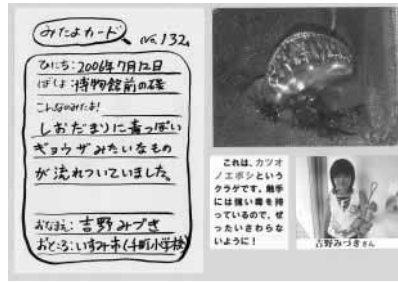 みたよカード No.132
ひにち:2006年7月12日
ばしょ:博物館前の磯
こんなのみたよ!
しおだまりに青っぽい
ギョウザみたいなもの
が流れついていました。
おなまえ:吉野みづき
おところ:いすみ市(千町小学校)
これは、カツオ
ノエボシという
クラゲです。触手
には強い毒を持
っているので、ぜ
ったいさわらな
いように!
吉野みづきさん